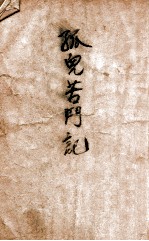 孤兒苦鬥記